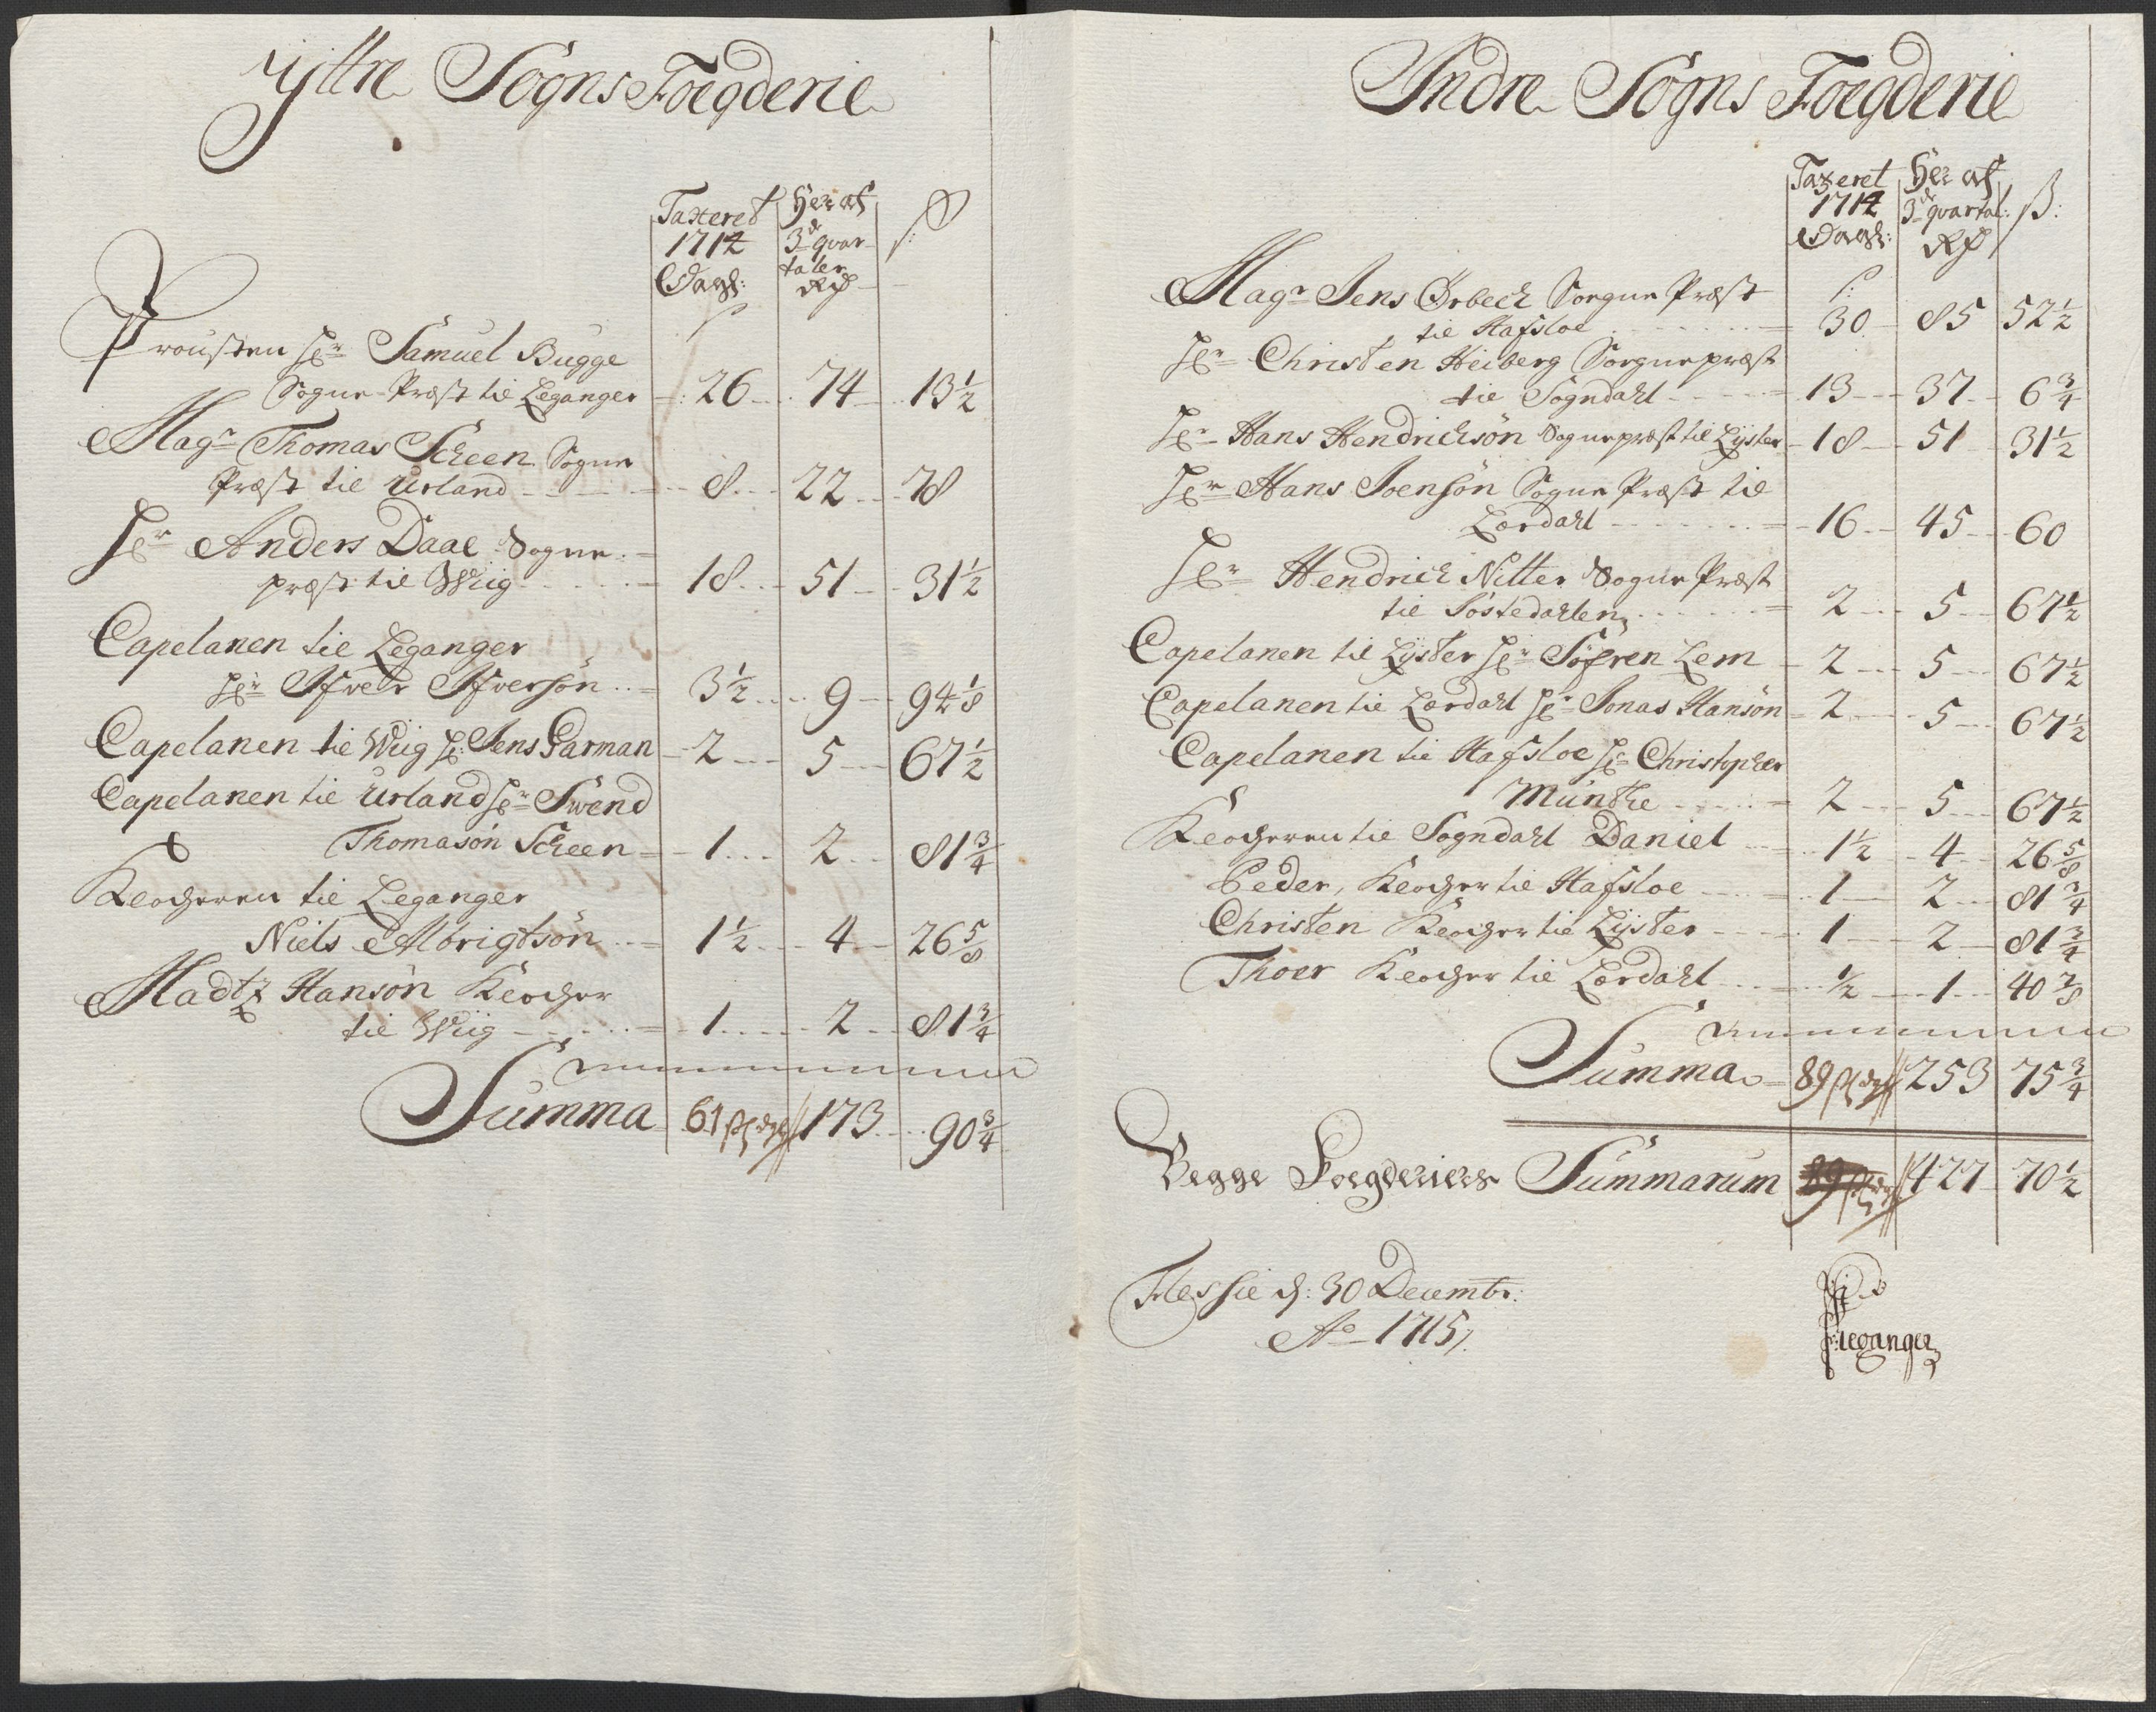 Yttre Sogns Foegderie
Taxteret Her af ß
1714 3de qvar-
Dagl: taler
Rd
Prousten Hr Samuel Bugge
Sogne-Præst til Leganger 26 74 13½
Magr Thomas Scheen Sogne
Præst til Urland 8 22 78
Hr Anders Daae Sogne-
præst til Wiig 18 51 31½
Capelanen til Leganger
Hr Ifver Ifversøn 3½ 9 94⅛
Capelanen til Wiig Hr: Jens Garman 2 5 67½
Capelanen til Urland Hr Swend
Thomasøn Scheen 1 2 81¾
Klocheren til Leganger
Niels Albrigtsøn 1½ 4 26⅝
Madtz Hansøn Klocher
til Wiig 1 2 81¾
Summa 61 173 90¾
Indre Sogns Foegderie
Taxeret Her af
1714 3de qvartal: ß:
Dagl: Rd
Magr Jens Ørbech Soegne Præst
til Hafsloe 30 85 52½
Hr Christen Heiberg Soegnepræst
til Sogndahl 13 37 6¾
Hr Hans Hendrichsøn Sognepræst til Lyster 18 51 31½
Hr Hans Joensøn Sogne Præst til
Lærdahl 16 45 60
Hr Hendrich Nitter Sogne Præst
til Jostedahlen 2 5 67½
Capelanen til Lyster Hr Søfren Lem 2 5 67½
Capelanen til Lærdahl Hr Jonas Hansøn 2 5 67½
Capelanen til Hafsloe Hr Christopher
Munthe 2 5 67½
Klocheren til Sogndahl Daniel 1½ 4 26⅝
Peder, Klocher til Hafsloe 1 2 81¾
Christen Klocher til Lyster 1 2 81¾
Thoer Klocher til Lærdahl ½ 1 40⅞
Summa 89 253 75¾
Begge Foegderiers Summarum 89 427 70½
Flessie d: 30 Decembr:
Ao 1715